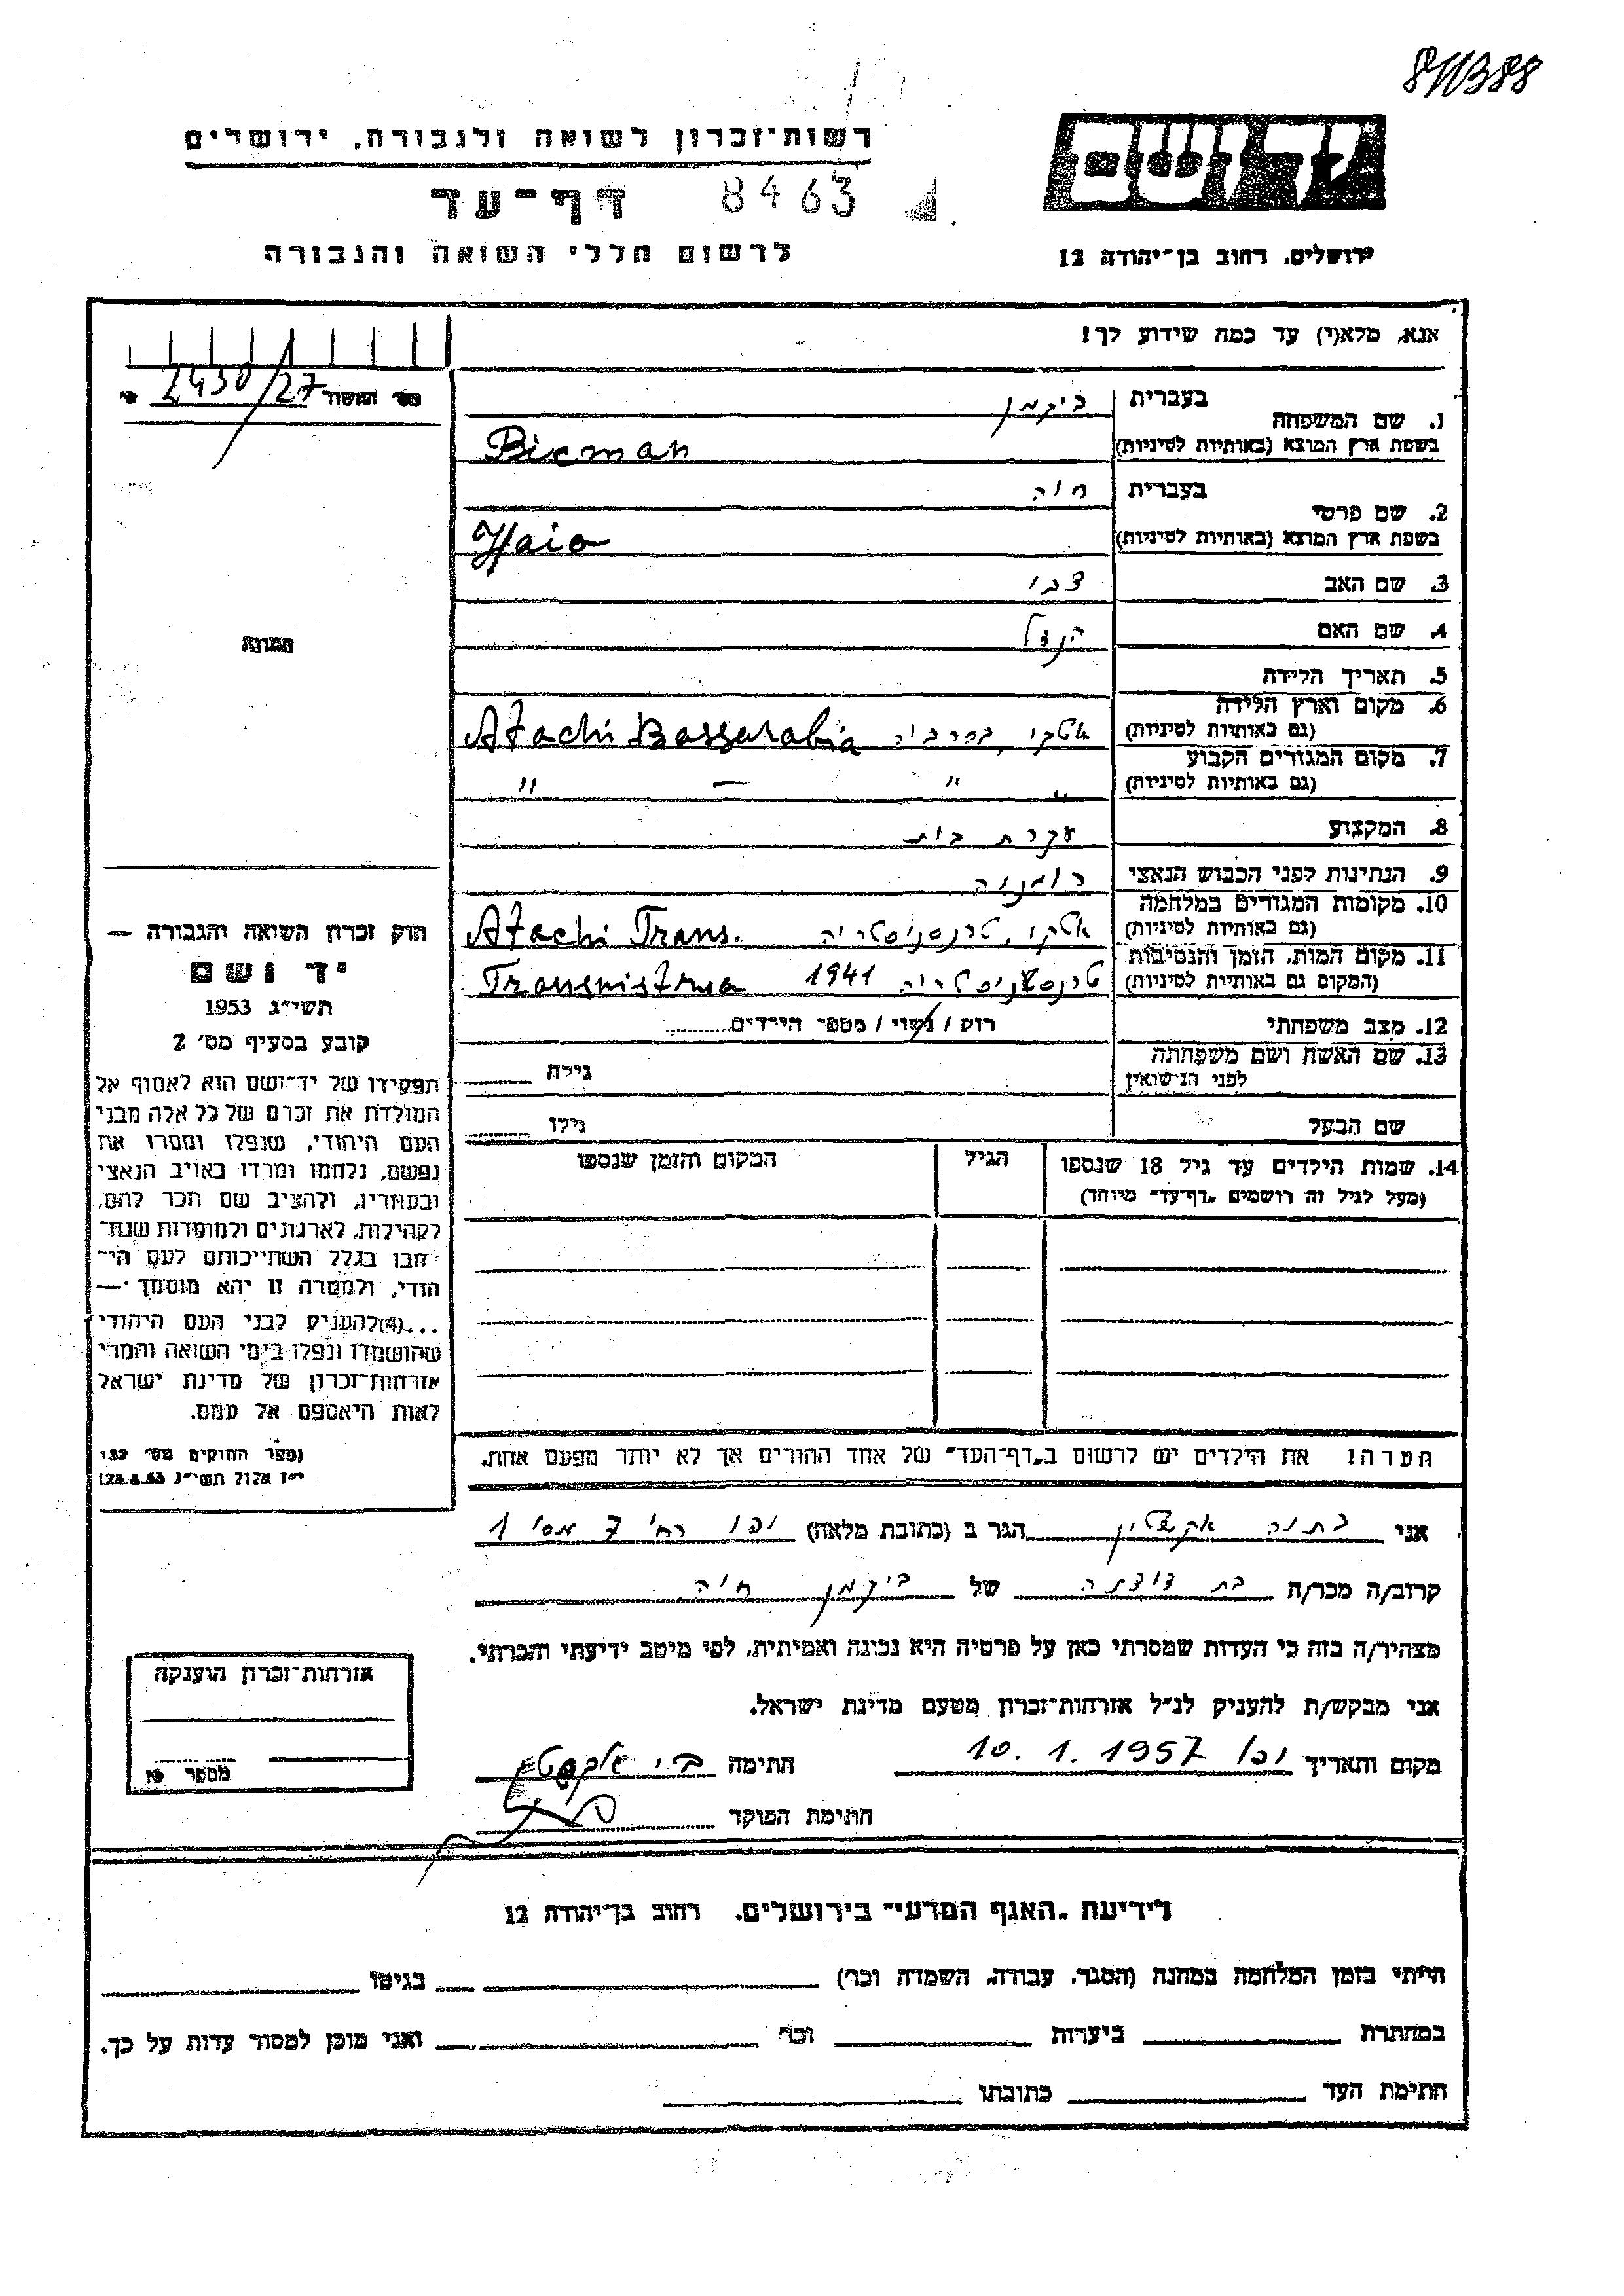 811388
רשות-זכרון לשואה ולגבורה, ירושלים
יד ושם
דף-עד 8463
לרשום חללי השואה והגבורה
ירושלים, רחוב בן-יהודה 12
אנא, מלא(י) עד כמה שידוע לך!
2430/27
1. שם המשפחה
בעברית ביקמן
בשפת ארץ המוצא (באותיות לטיניות) Bicman
2. שם פרטי
בעברית חיה
בשפת ארץ המוצא (באותיות לטיניות) Haia
3. שם האב צבי
4. שם האם הנדל
5. תאריך הלידה
6. מקום וארץ הלידה
(גם באותיות לטיניות) אטקי, בסרביה Atachi Bassarabia
7. מקום המגורים הקבוע
(גם באותיות לטיניות) " " — "
8. המקצוע עקרת בית
9. הנתינות לפני הכבוש הנאצי רומניה
10. מקומות המגורים במלחמה
(גם באותיות לטיניות) אטקי, טרנסניסטריה Atachi Trans.
11. מקום המות, הזמן והנסיבות
(המקום גם באותיות לטיניות) טרנסניסטריה 1941 Transnistria
12. מצב משפחתי רווק / נשוי / מספר הילדים
13. שם האשה ושם משפחתה
לפני הנישואין גילה
שם הבעל גילו
14. שמות הילדים עד גיל 18 שנספו
(מעל לגיל זה רושמים "דף-עד" מיוחד)
הגיל
המקום והזמן שנספו
הערה: את הילדים יש לרשום ב"דף-העד" של אחד ההורים אך לא יותר מפעם אחת.
תמונה
חוק זכרון השואה והגבורה —
יד ושם
תשי״ג 1953
קובע בסעיף מס׳ 2
תפקידו של יד־ושם הוא לאסוף אל
המולדת את זכרם של כל אלה מבני
העם היהודי, שנפלו ומסרו את
נפשם, נלחמו ומרדו באויב הנאצי
ובעוזריו, ולהציב שם וזכר להם,
לקהילות, לארגונים ולמוסדות שנח־
רבו בגלל השתייכותם לעם הי־
הודי, ולמטרה זו יהא מוסמך —
...(4)להעניק לבני העם היהודי
שהושמדו ונפלו בימי השואה והמרי
אזרחות־זכרון של מדינת ישראל
לאות היאספם אל עמם.
(ספר החוקים מס׳ 132
י״ז אלול תשי״ג 28.8.53)
אני הגר ב (כתובת מלאה) יפו רח׳ 7 מס׳ 1
קרוב/ה מכר/ה בת דודתה של ביקמן חיה
מצהיר/ה בזה כי העדות שמסרתי כאן על פרטיה היא נכונה ואמיתית, לפי מיטב ידיעתי והכרתי.
אני מבקש/ת להעניק לנ״ל אזרחות־זכרון מטעם מדינת ישראל.
מקום ותאריך יפו 10. 1. 1957 חתימה
חתימת הפוקד
אזרחות־זכרון הוענקה
מספר
לידיעת "האגף המדעי" בירושלים, רחוב בן־יהודה 12
הייתי בזמן המלחמה במחנה (הסגר, עבודה, השמדה וכו׳) בגיטו
במחתרת ביערות וכו׳ ואני מוכן למסור עדות על כך.
חתימת העד כתובתו